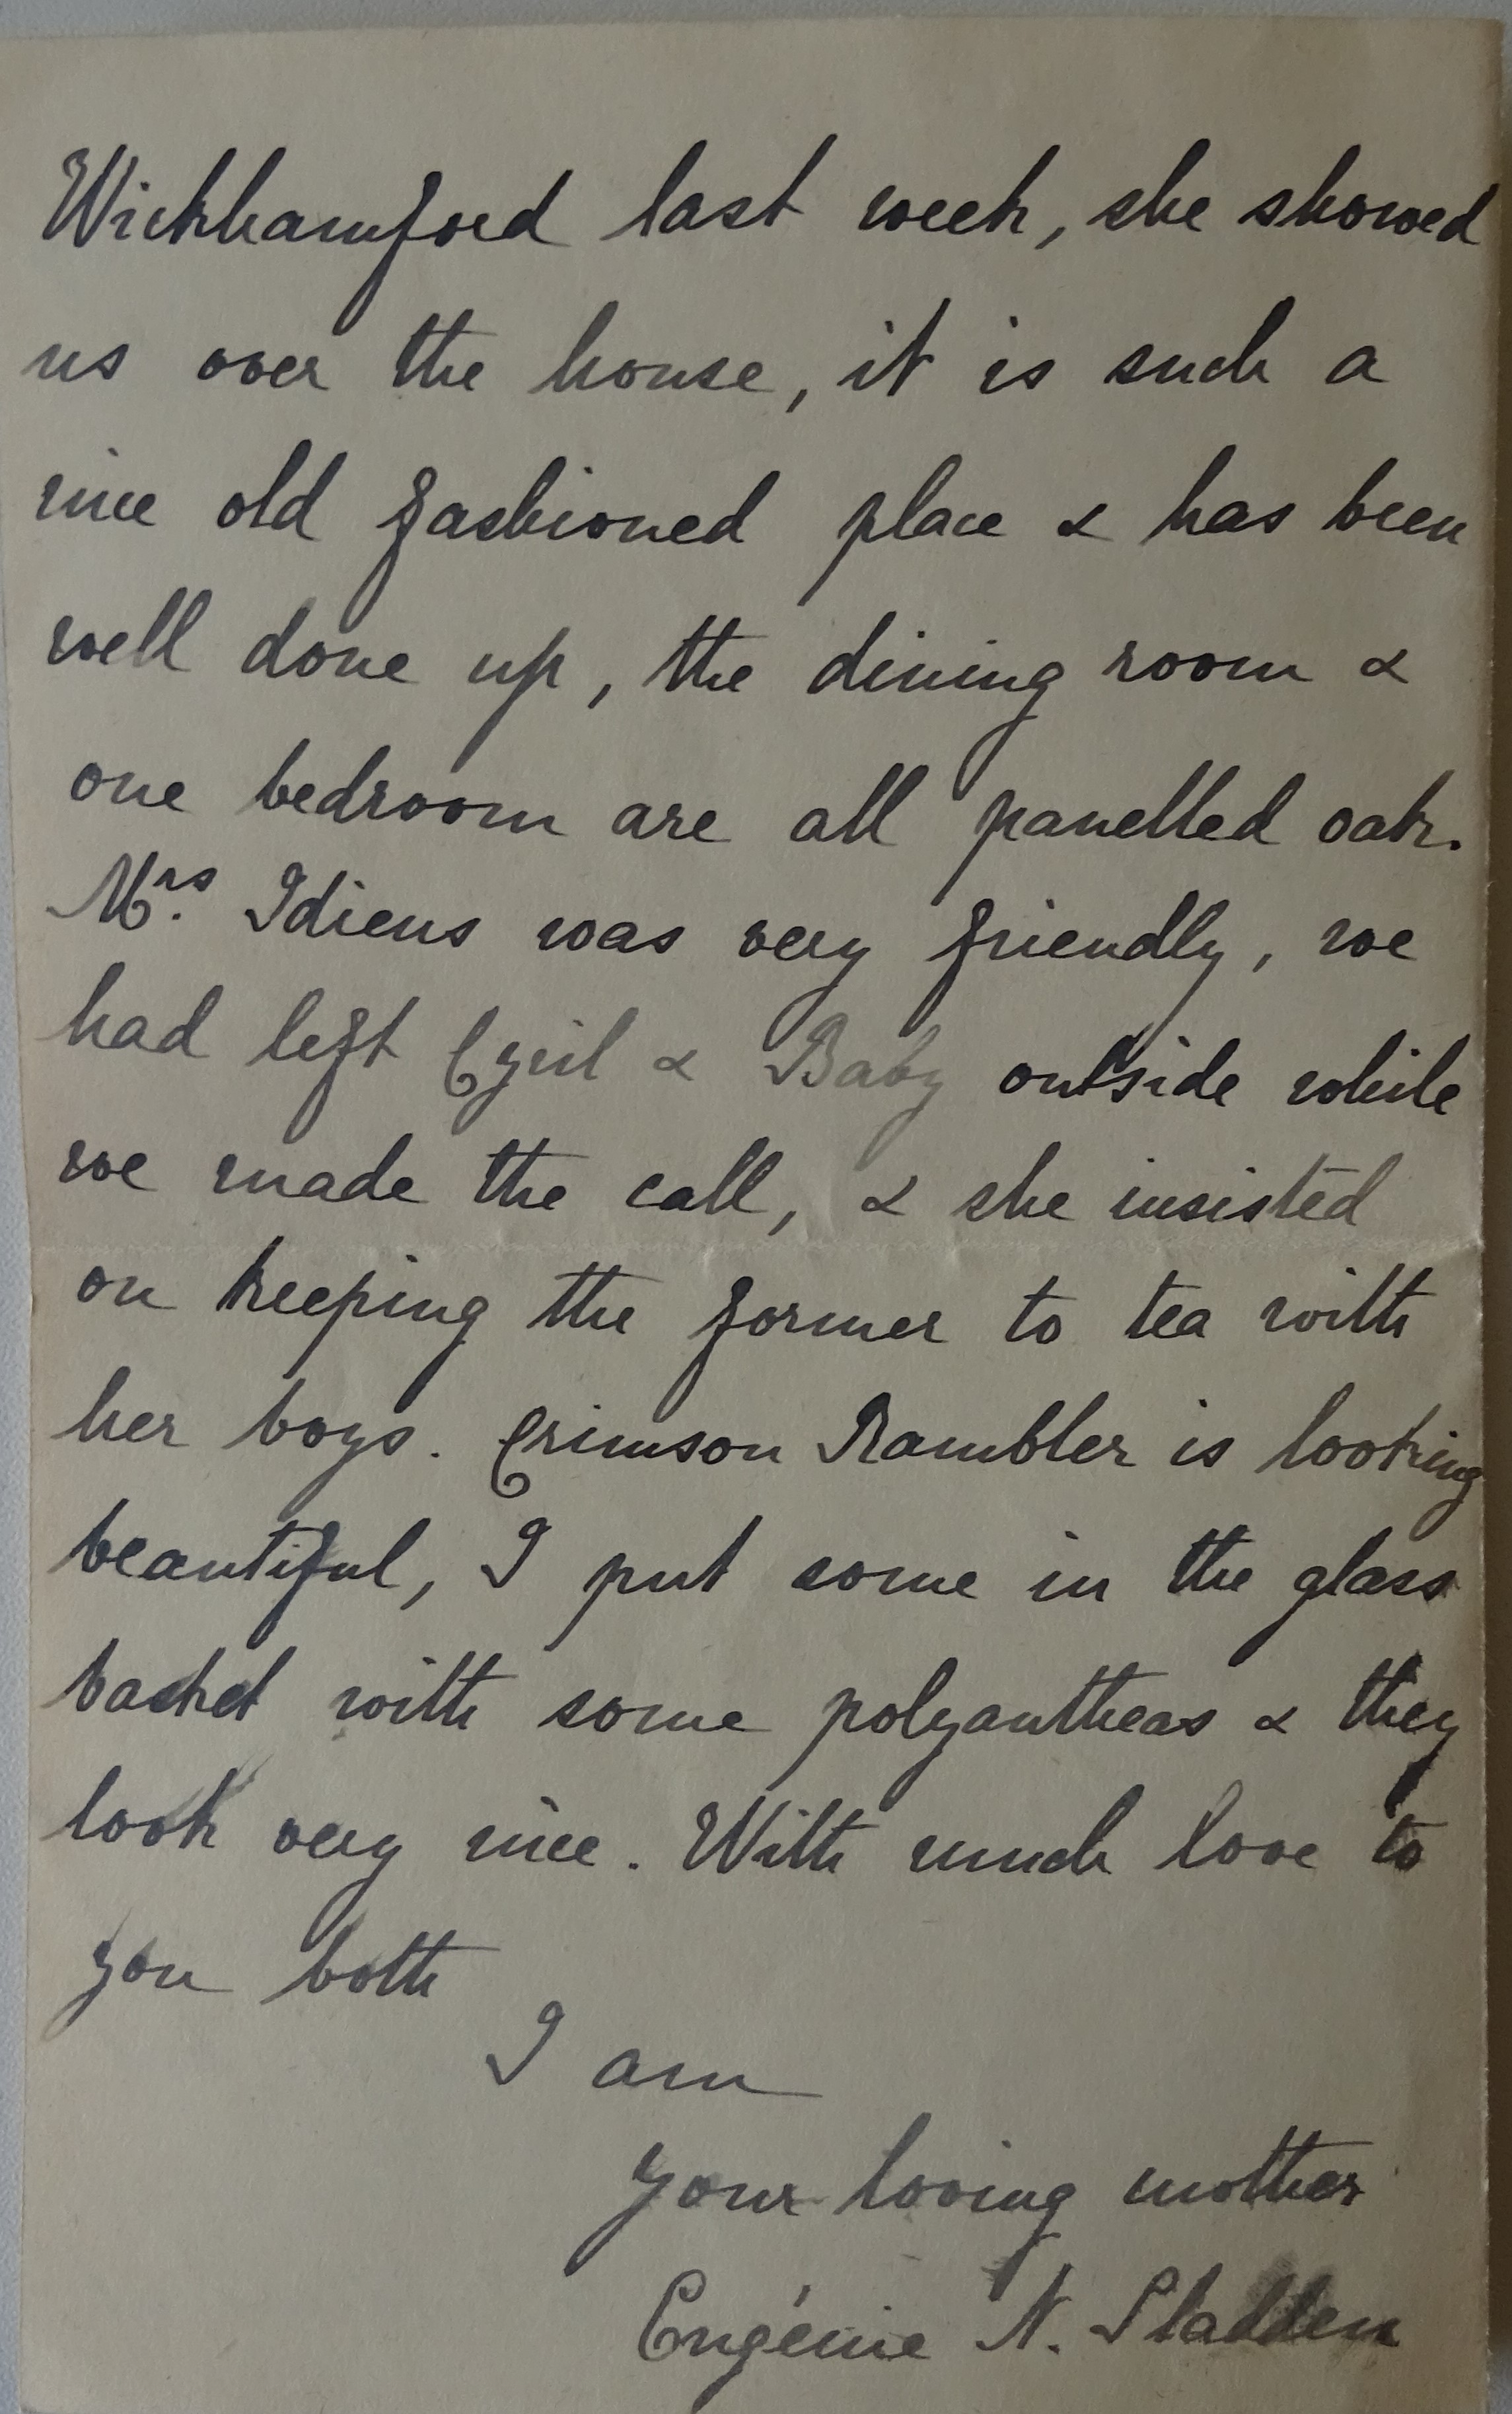 Wickhamford last week, she showed
us over the house, it is such a
nice old fashioned place & has been
well done up, the dining room &
one bedroom are all panelled oak.
Mrs. Idiens was very friendly, we
had left Cyril & Baby outside while
we made the call, & she insisted
on keeping the former to tea with
her boys. Crimson Rambler is looking
beautiful, I put some in the glass
basket with some polyantheas & they
look very nice. With much love to
you both
I am
Your loving mother
Eugénie N. Sladden